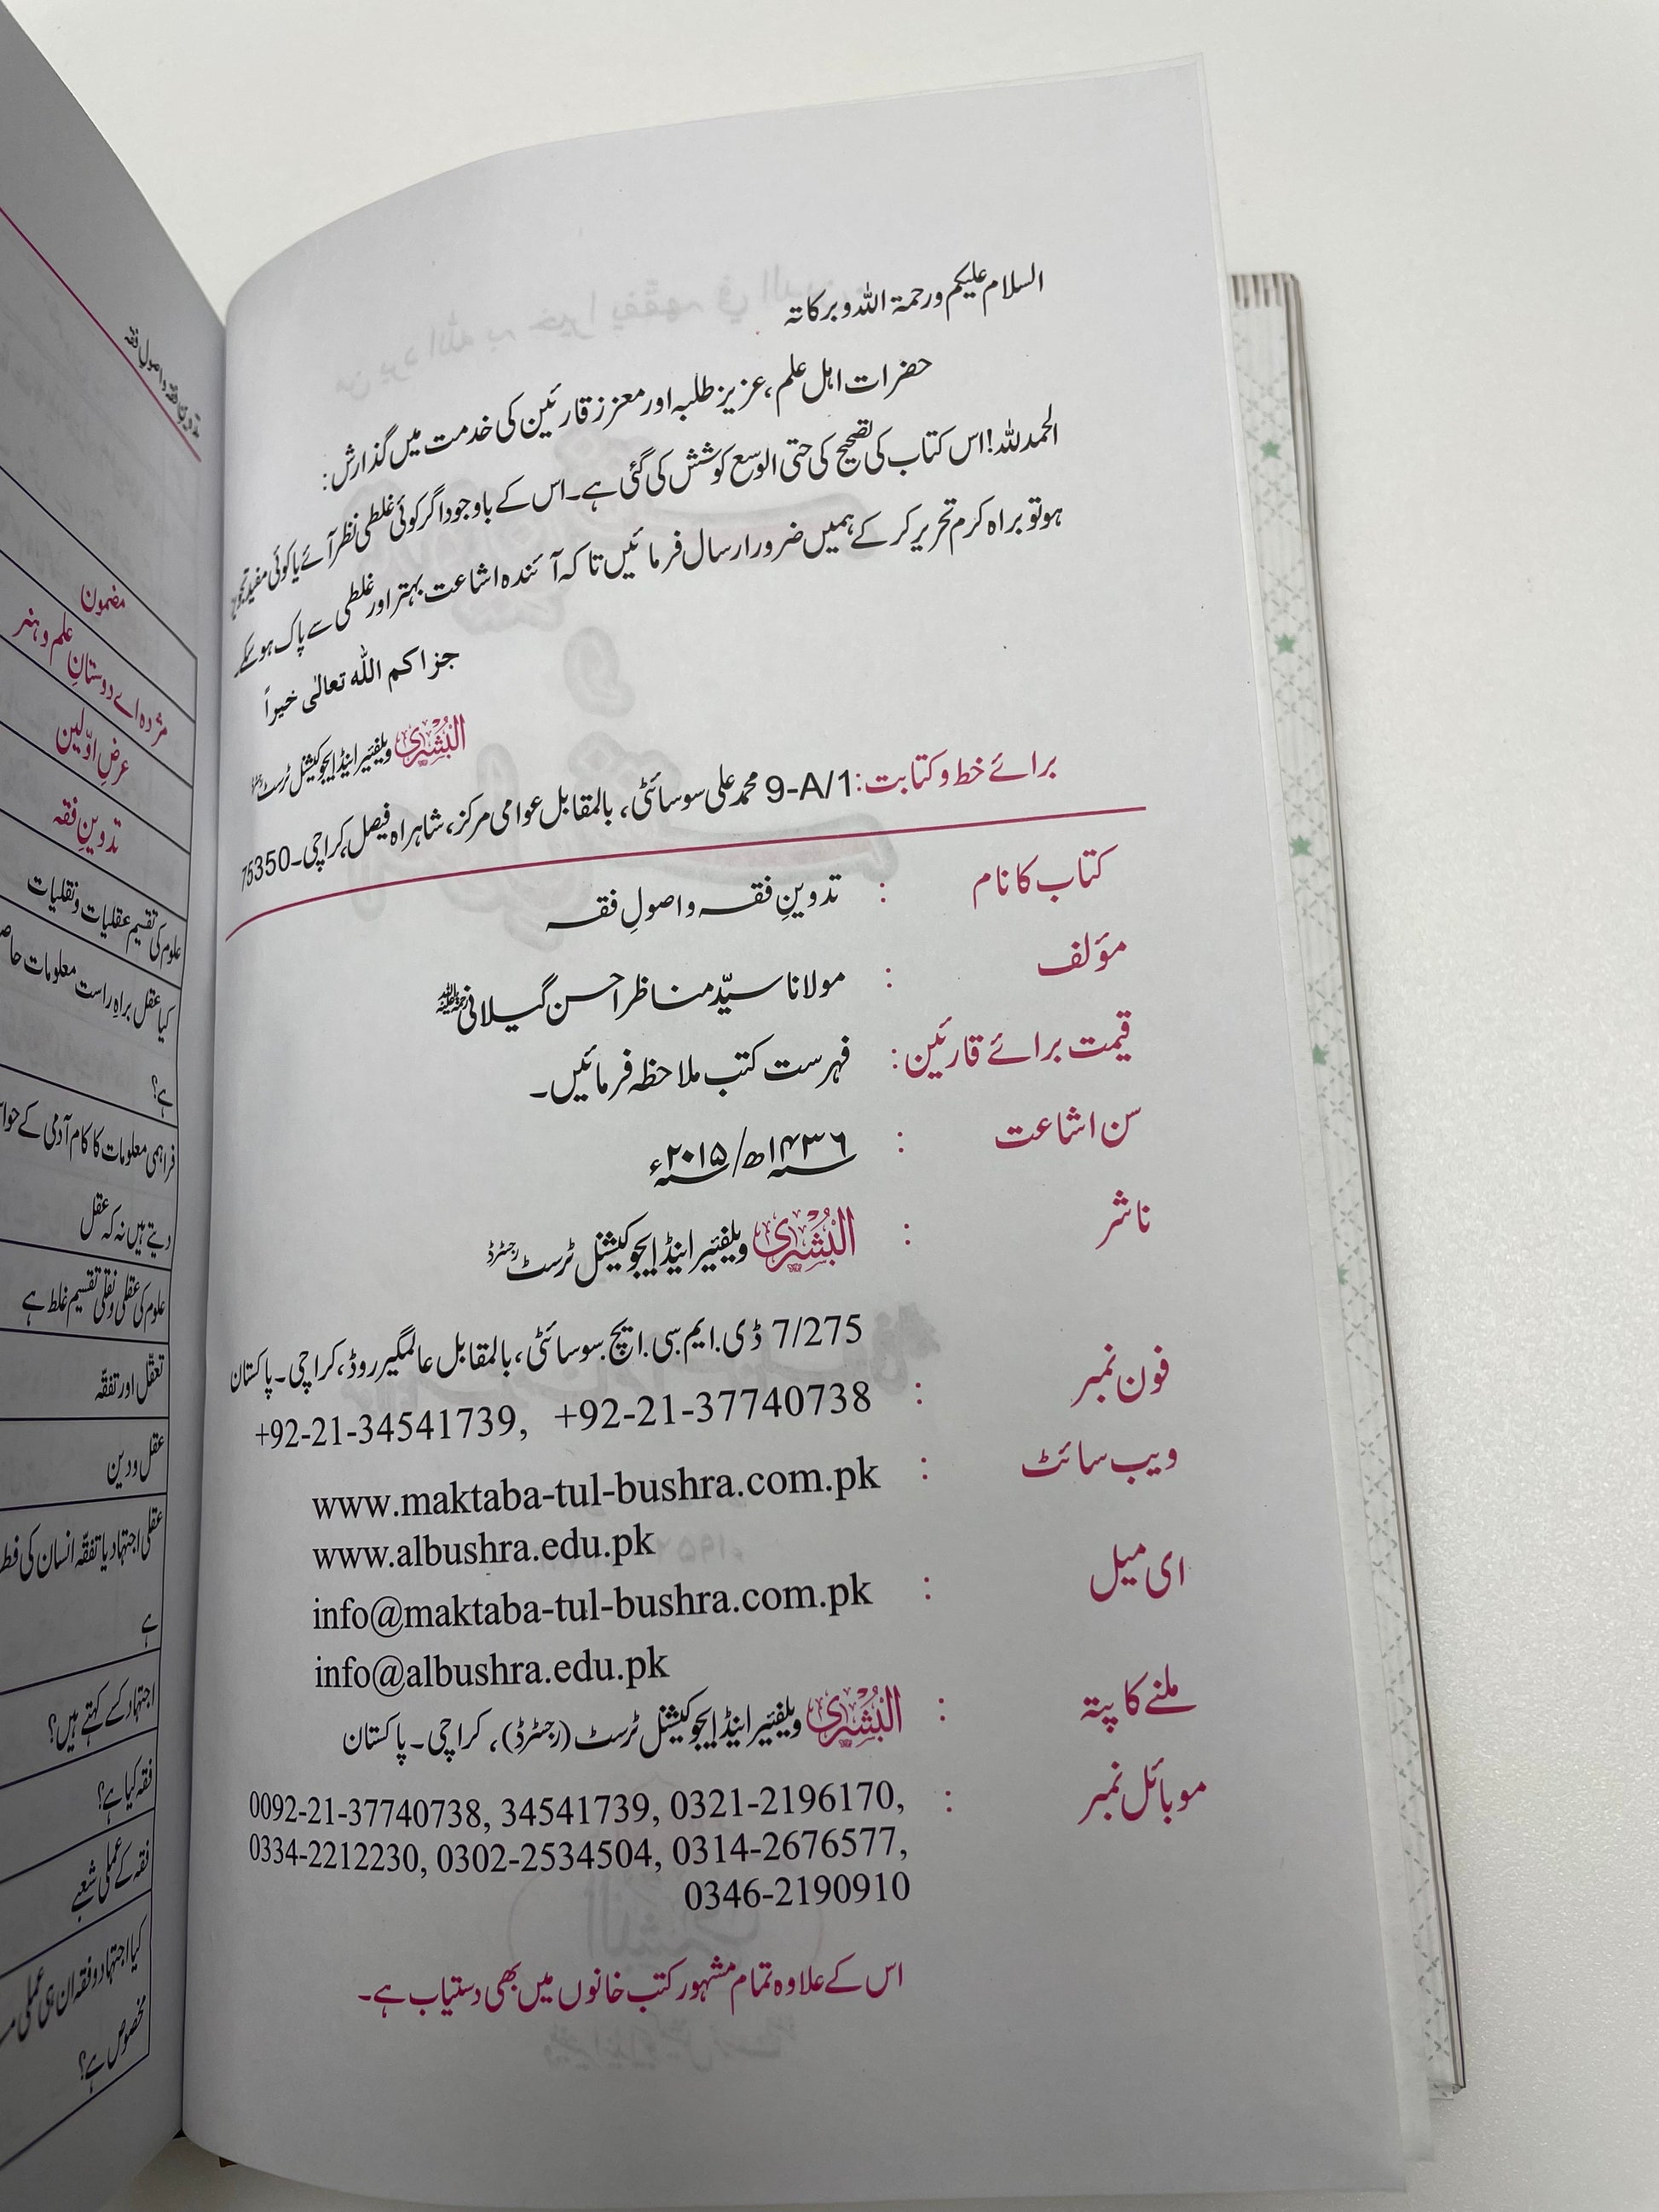 السلام علیکم ورحمۃ اللہ وبرکاتہ
حضرات اہل علم، عزیز طلبہ اور معزز قارئین کی خدمت میں گذارش:
الحمدللہ! اس کتاب کی تصحیح کی حتی الوسع کوشش کی گئی ہے۔ اس کے باوجود اگر کوئی غلطی نظر آئے یا کوئی مفید تجویز
ہو تو براہ کرم تحریر کر کے ہمیں ضرور ارسال فرمائیں تاکہ آئندہ اشاعت بہتر اور غلطی سے پاک ہو سکے۔
جزاکم اللہ تعالٰی خیراً
البُشریٰ ویلفئیر اینڈ ایجوکیشنل ٹرسٹ رجسٹرڈ
برائے خط و کتابت: 9-A/1 محمد علی سوسائٹی، بالمقابل عوامی مرکز، شاہراہ فیصل، کراچی۔ 75350
کتاب کا نام : تدوینِ فقہ و اصولِ فقہ
مؤلف : مولانا سیّد مناظر احسن گیلانی رحمۃ اللہ علیہ
قیمت برائے قارئین: فہرست کتب ملاحظہ فرمائیں۔
سن اشاعت : ۱۴۳۶ھ/۲۰۱۵ء
ناشر : البُشریٰ ویلفئیر اینڈ ایجوکیشنل ٹرسٹ رجسٹرڈ
7/275 ڈی.ایم.سی.ایچ.سوسائٹی، بالمقابل عالمگیر روڈ، کراچی۔ پاکستان
فون نمبر : +92-21-34541739, +92-21-37740738
ویب سائٹ : www.maktaba-tul-bushra.com.pk
www.albushra.edu.pk
ای میل : info@maktaba-tul-bushra.com.pk
info@albushra.edu.pk
ملنے کا پتہ : البُشریٰ ویلفئیر اینڈ ایجوکیشنل ٹرسٹ (رجسٹرڈ)، کراچی۔ پاکستان
موبائل نمبر : 0092-21-37740738, 34541739, 0321-2196170,
0334-2212230, 0302-2534504, 0314-2676577,
0346-2190910
اس کے علاوہ تمام مشہور کتب خانوں میں بھی دستیاب ہے۔
تدوینِ فقہ و اصولِ فقہ
مضمون
مژدہ اے دوستانِ علم و ہنر
عرضِ اوّلین
تدوینِ فقہ
علوم کی تقسیم عقلیات و نقلیات
کیا عقل براہِ راست معلومات
ہے؟
فراہمی معلومات کا کام آدمی کے
دیتے ہیں نہ کہ عقل
علوم کی عقلی و نقلی تقسیم غلط ہے
تعقّل اور تفقّہ
عقل و دین
عقلی اجتہاد یا تفقّہ انسان کی
ہے
اجتہاد کسے کہتے ہیں؟
فقہ کیا ہے؟
فقہ کے عملی شعبے
کیا اجتہاد و فقہ ان ہی عملی
مخصوص ہے؟